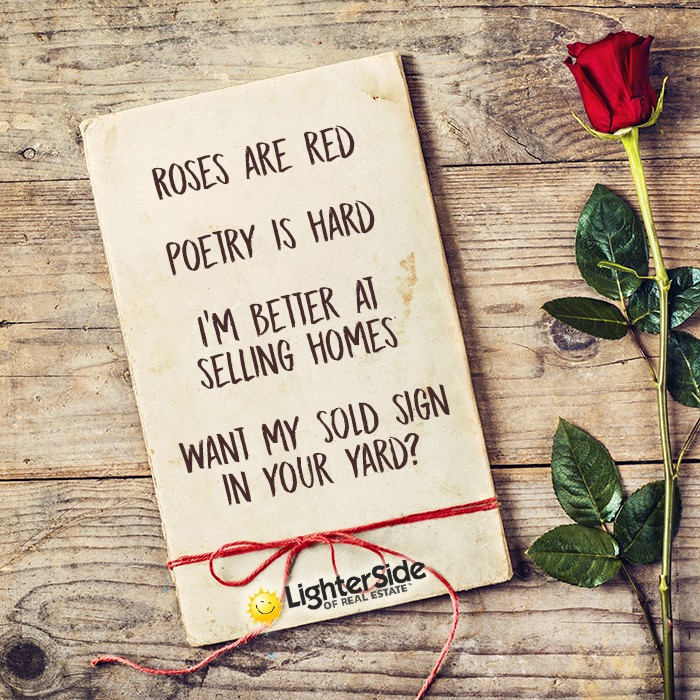 ROSES ARE RED
POETRY IS HARD
I'M BETTER AT
SELLING HOMES
WANT MY SOLD SIGN
IN YOUR YARD?
LIGHTERSIDE
OF REAL ESTATE